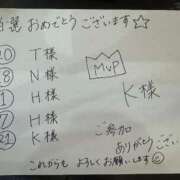 当選おめでとうございます☆
20 T様
8 N様
1 H様
7 H様
21 K様
MVP
K様
ご参加
ありがとう
ございます
これからもよろしくお願いします